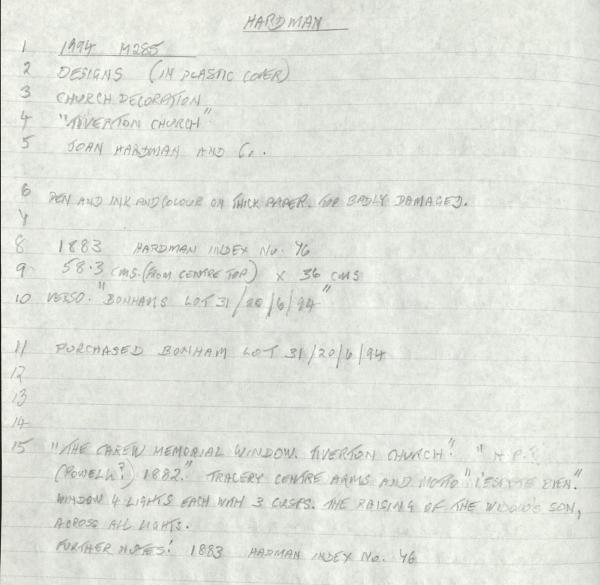 HARDMAN
1 1994 M285
2 DESIGNS (IN PLASTIC COVER)
3 CHURCH DECORATION
4 "TIVERTON CHURCH"
5 JOHN HARDMAN AND Co.
6 PEN AND INK AND COLOUR ON THICK PAPER. TOP BADLY DAMAGED.
7
8 1883 HARDMAN INDEX No. 46
9 58.3 CMS. (FROM CENTRE TOP) X 36 CMS
10 VERSO. "BONHAMS LOT 31/20/6/94"
11 PURCHASED BONHAM LOT 31/20/6/94
12
13
14
15 "THE CAREW MEMORIAL WINDOW. TIVERTON CHURCH". "H P.?
(POWELL?) 1882." TRACERY CENTRE ARMS AND MOTTO "
WINDOW 4 LIGHTS EACH WITH 3 CUSPS. THE RAISING OF THE WIDOW'S SON,
ACROSS ALL LIGHTS.
FURTHER NOTES: 1883 HADMAN INDEX No. 46